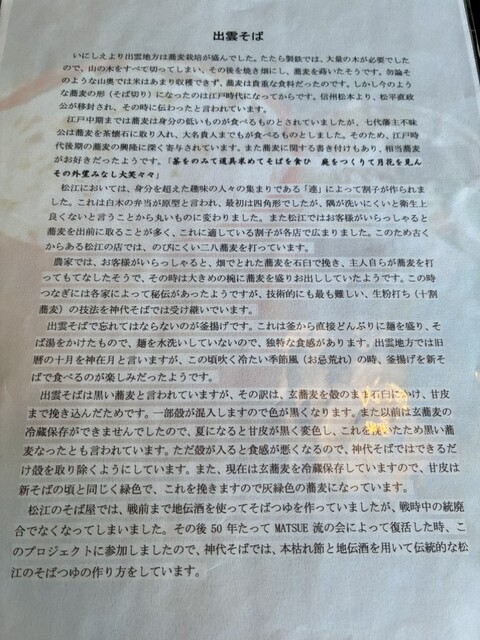 出雲そば
いにしえより出雲地方は蕎麦栽培が盛んでした。たたら製鉄では、大量の木が必要でした
ので、山の木をすべて切ってしまい、その後を焼き畑にし、蕎麦を蒔いたそうです。勿論そ
のような山奥では米はあまり収穫できず、蕎麦は貴重な食料だったのです。しかし今のよう
な蕎麦の形（そば切り）になったのは江戸時代になってからです。信州松本より、松平直政
公が移封され、その時に伝わったと言われています。
江戸中期までは蕎麦は身分の低いものが食べるものとされていましたが、七代藩主不昧
公は蕎麦を茶懐石に取り入れ、大名貴人までもが食べるものとしました。そのため、江戸時
代後期の蕎麦の興隆に深く寄与されています。また蕎麦に関する書き付けもあり、相当蕎麦
がお好きだったようです。「茶をのみて道具求めてそばを食ひ　庭をつくりて月花を見ん
その外望みなし大笑々々」
松江においては、身分を超えた趣味の人々の集まりである「連」によって割子が作られま
した。これは白木の弁当が原型と言われ、最初は四角形でしたが、隅が洗いにくいと衛生上
良くないと言うことから丸いものに変わりました。また松江ではお客様がいらっしゃると
蕎麦を出前に取ることが多く、これに適している割子が各店で広まりました。このため古く
からある松江の店では、のびにくい二八蕎麦を打っています。
農家では、お客様がいらっしゃると、畑でとれた蕎麦を石臼で挽き、主人自らが蕎麦を打
ってもてなしたそうで、その時は大きめの椀に蕎麦を盛りお出ししていたようです。この時
つなぎには各家によって秘伝があったようですが、技術的にも最も難しい、生粉打ち（十割
蕎麦）の技法を神代そばでは受け継いでいます。
出雲そばで忘れてはならないのが釜揚げです。これは釜から直接どんぶりに麺を盛り、そ
ば湯をかけたもので、麺を水洗いしていないので、独特な食感があります。出雲地方では旧
暦の十月を神在月と言いますが、この頃吹く冷たい季節風（お忌荒れ）の時、釜揚げを新そ
ばで食べるのが楽しみだったようです。
出雲そばは黒い蕎麦と言われていますが、その訳は、玄蕎麦を殻のまま石臼にかけ、甘皮
まで挽き込んだためです。一部殻が混入しますので色が黒くなります。また以前は玄蕎麦の
冷蔵保存ができませんでしたので、夏になると甘皮が黒く変色し、これを挽いたため黒い蕎
麦なったとも言われています。ただ殻が入ると食感が悪くなるので、神代そばではできるだ
け殻を取り除くようにしています。また、現在は玄蕎麦を冷蔵保存していますので、甘皮は
新そばの頃と同じく緑色で、これを挽きますので灰緑色の蕎麦になっています。
松江のそば屋では、戦前まで地伝酒を使ってそばつゆを作っていましたが、戦時中の統廃
合でなくなってしまいました。その後 50 年たって MATSUE 流の会によって復活した時、こ
のプロジェクトに参加しましたので、神代そばでは、本枯れ節と地伝酒を用いて伝統的な松
江のそばつゆの作り方をしています。